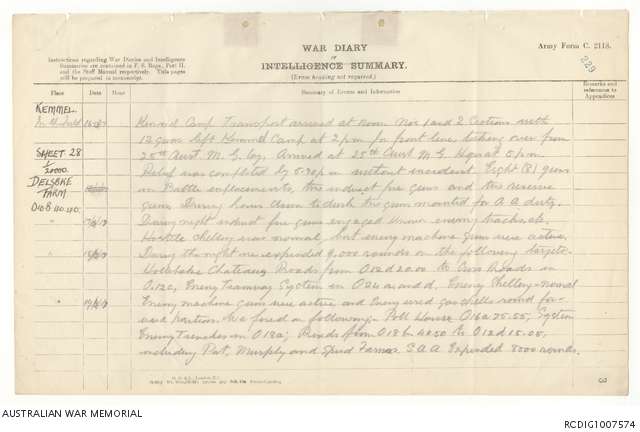 WAR DIARY
OF
INTELLIGENCE SUMMARY.
(Erase heading not required.)
Army Form C. 2118.
229
Instructions regarding War Diaries and Intelligence
Summaries are contained in F. S. Regs., Part II.
and the Staff Manual respectively. Title pages
will be prepared in manuscript.
Place Date Hour Summary of Events and Information Remarks and references to Appendices
KEMMEL.
Kemmel Camp Transport arrived at noon Nos 1 and 2 Sections with
12 guns left Kemmel Camp at 2 pm for front line, taking over from
SHEET 28 25th Aust. M. G. Coy. Arrived at 25th Aust M G Hqrs at 5 pm.
1/20000. Relief was completed by 5.30 pm without incident. Eight (8) guns
DELSBKE in Battle emplacements, two indirect fire guns and two reserve
FARM guns. During hours dawn to dusk two guns mounted for A A duty.
O10B 110.110. During night indirect fire guns engaged known enemy tracks etc.
Hostile shelling was normal, but enemy machine guns were active.
" During the night we expended 9,000 rounds on the following targets:-
Hollebeke Chateau; Roads from O12d 20.00 to Cross Roads in
O.12c, Enemy Tramway System in O24 a and d, Enemy Shelling - normal
" Enemy machine guns were active and Enemy used gas shells round for-
ward position. We fired on following:- Poll House O16a 75.55, System
Enemy Trenches in O18a; Roads from O18b 40.50 to O12d 15.05.
including Pat, Murphy and Spud Farms. S A A Expended 8500 rounds.
3
AUSTRALIAN WAR MEMORIAL
RCDIG1007574